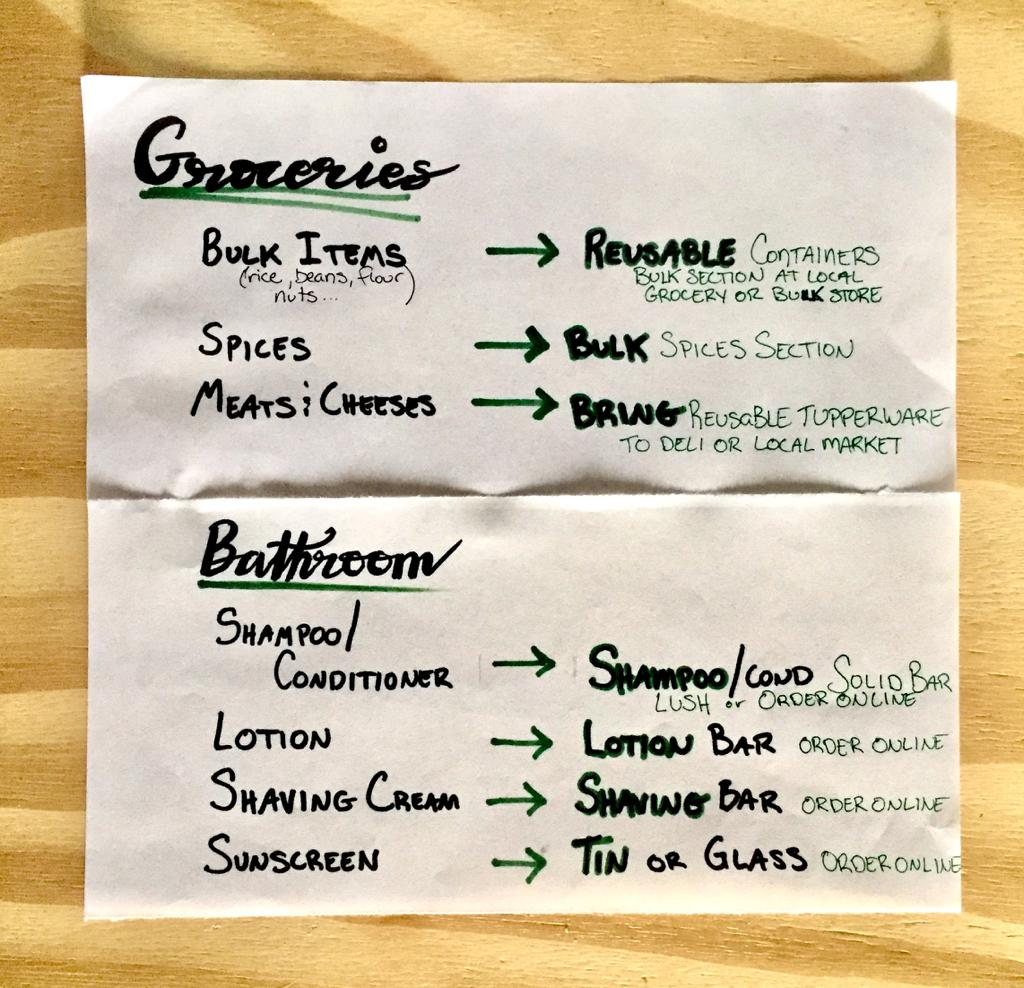 Groceries
BULK ITEMS → REUSABLE CONTAINERS
(rice, beans, flour) BULK SECTION AT LOCAL
nuts... GROCERY OR BULK STORE
SPICES → BULK SPICES SECTION
MEATS & CHEESES → BRING REUSABLE TUPPERWARE
TO DELI OR LOCAL MARKET
Bathroom
SHAMPOO/
CONDITIONER → SHAMPOO/COND SOLID BAR
LUSH or ORDER ONLINE
LOTION → LOTION BAR ORDER ONLINE
SHAVING CREAM → SHAVING BAR ORDER ONLINE
SUNSCREEN → TIN OR GLASS ORDER ONLINE